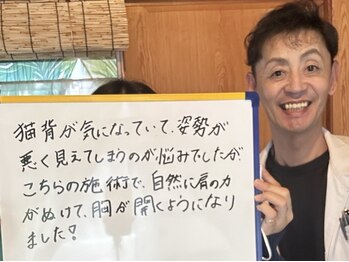 猫背が気になっていて、姿勢が
悪く見えてしまうのが悩みでしたが
こちらの施術で、自然に肩の力
がぬけて、胸が開くようになり
ました!